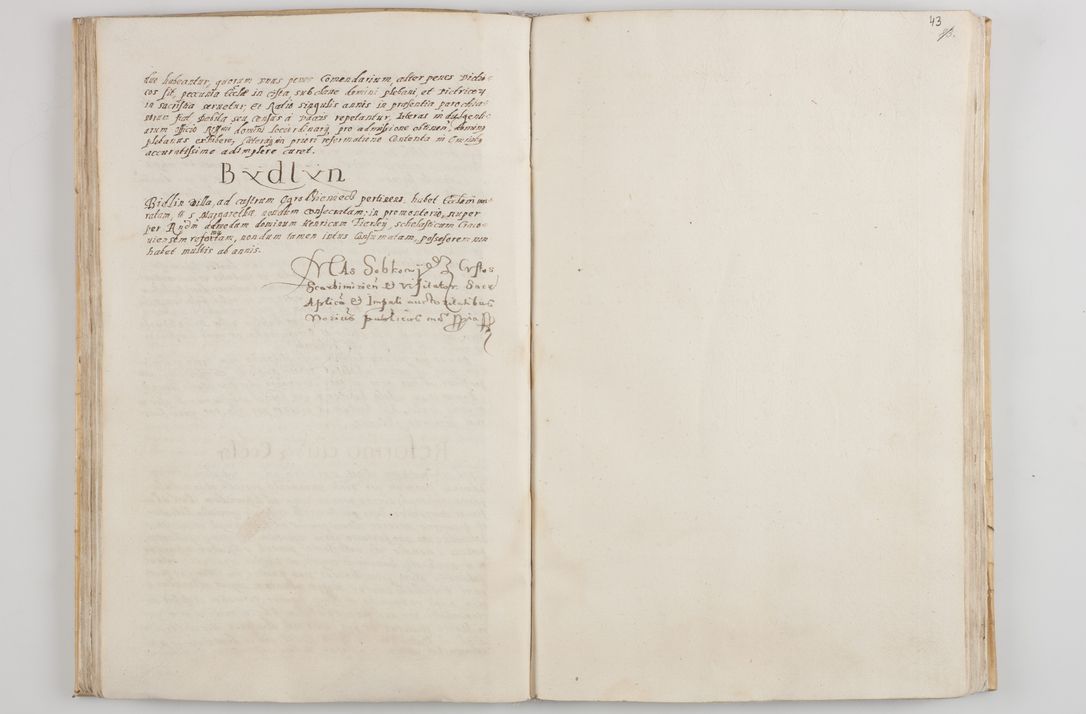 duo habeantur, quorum unus penes Comendarium, alter penes Vitri
cos sit, pecunia Ecclae in cista, sub clave domini plebani, et vitricory
in sacristia servetur, Et Ratio singulis annis in presentia parochia
norum fiat Debita seu census a repetantur, literas in diligentic
arum officio Rssmi domini loci ordinarij, pro admissione obtinen, dominus
plebanus exhibere, in priori reformatione Contenta
accuratissime adimplere curet.
Bydlyn
Bidlin Villa, ad castrum Ogrodzieniecz pertinens, habet Ecclesiam mu
ratam, tt s Margaretha, nondum consecratam, in promontorio, nuper
per Rndm admodum dominum Henricum scholasticum Craco
viensem reformatam, nondum tamen intus consumatam, possessorem non
habet multis ab annis.
Sobkowij Custos
Scarbimirien et Visitator Sacr
Aplica et Impali auctoritatibus
Notarius publicus mp
43